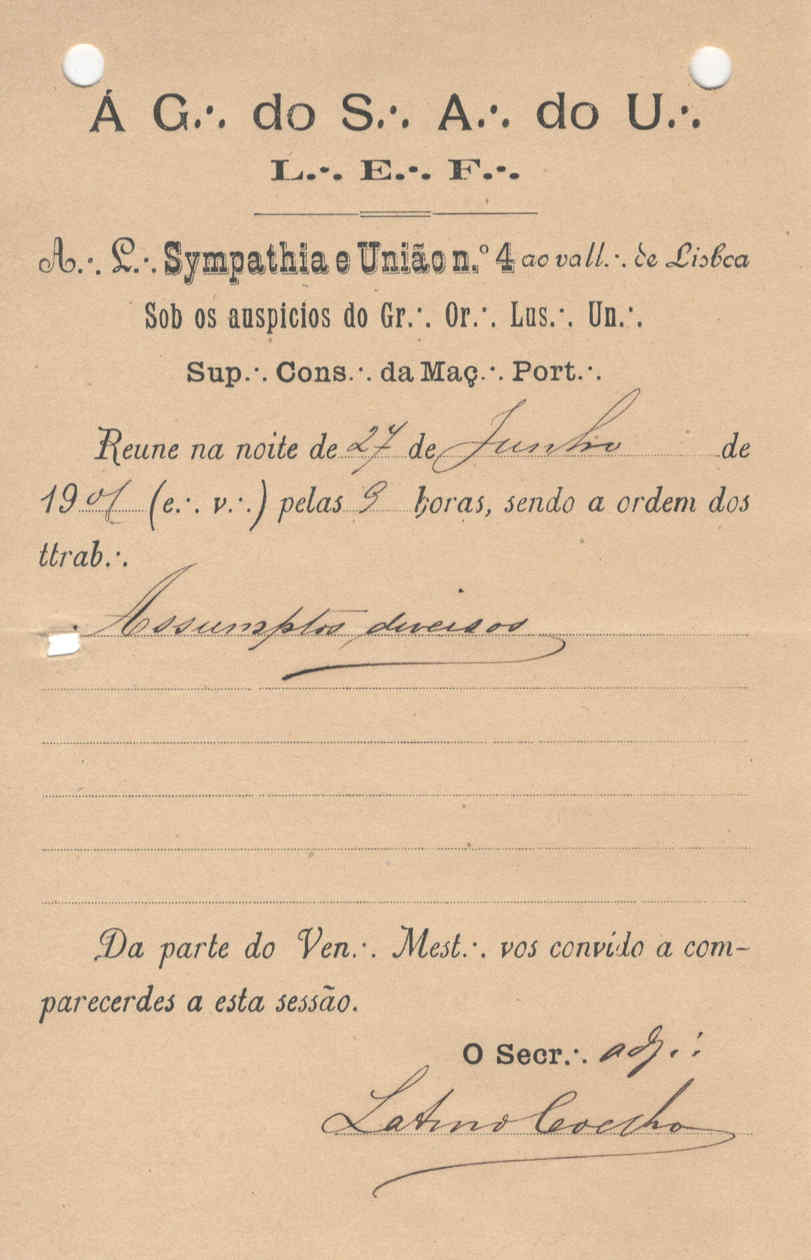 Á G.·. do S.·. A.·. do U.·.
L.·. E.·. F.·.
A.·. L.·. Sympathia e União n.º 4 ao vall.·. de Lisboa
Sob os auspicios do Gr.·. Or.·. Lus.·. Un.·.
Sup.·. Cons.·. da Maç.·. Port.·.
Reune na noite de 27 de Junho de
1901 (e.·. v.·.) pelas 9 horas, sendo a ordem dos
ttrab.·.
Assumptos diversos
Da parte do Ven.·. Mest.·. vos convido a com-
parecerdes a esta sessão.
O Secr.·. adj.·.
Latino Coelho